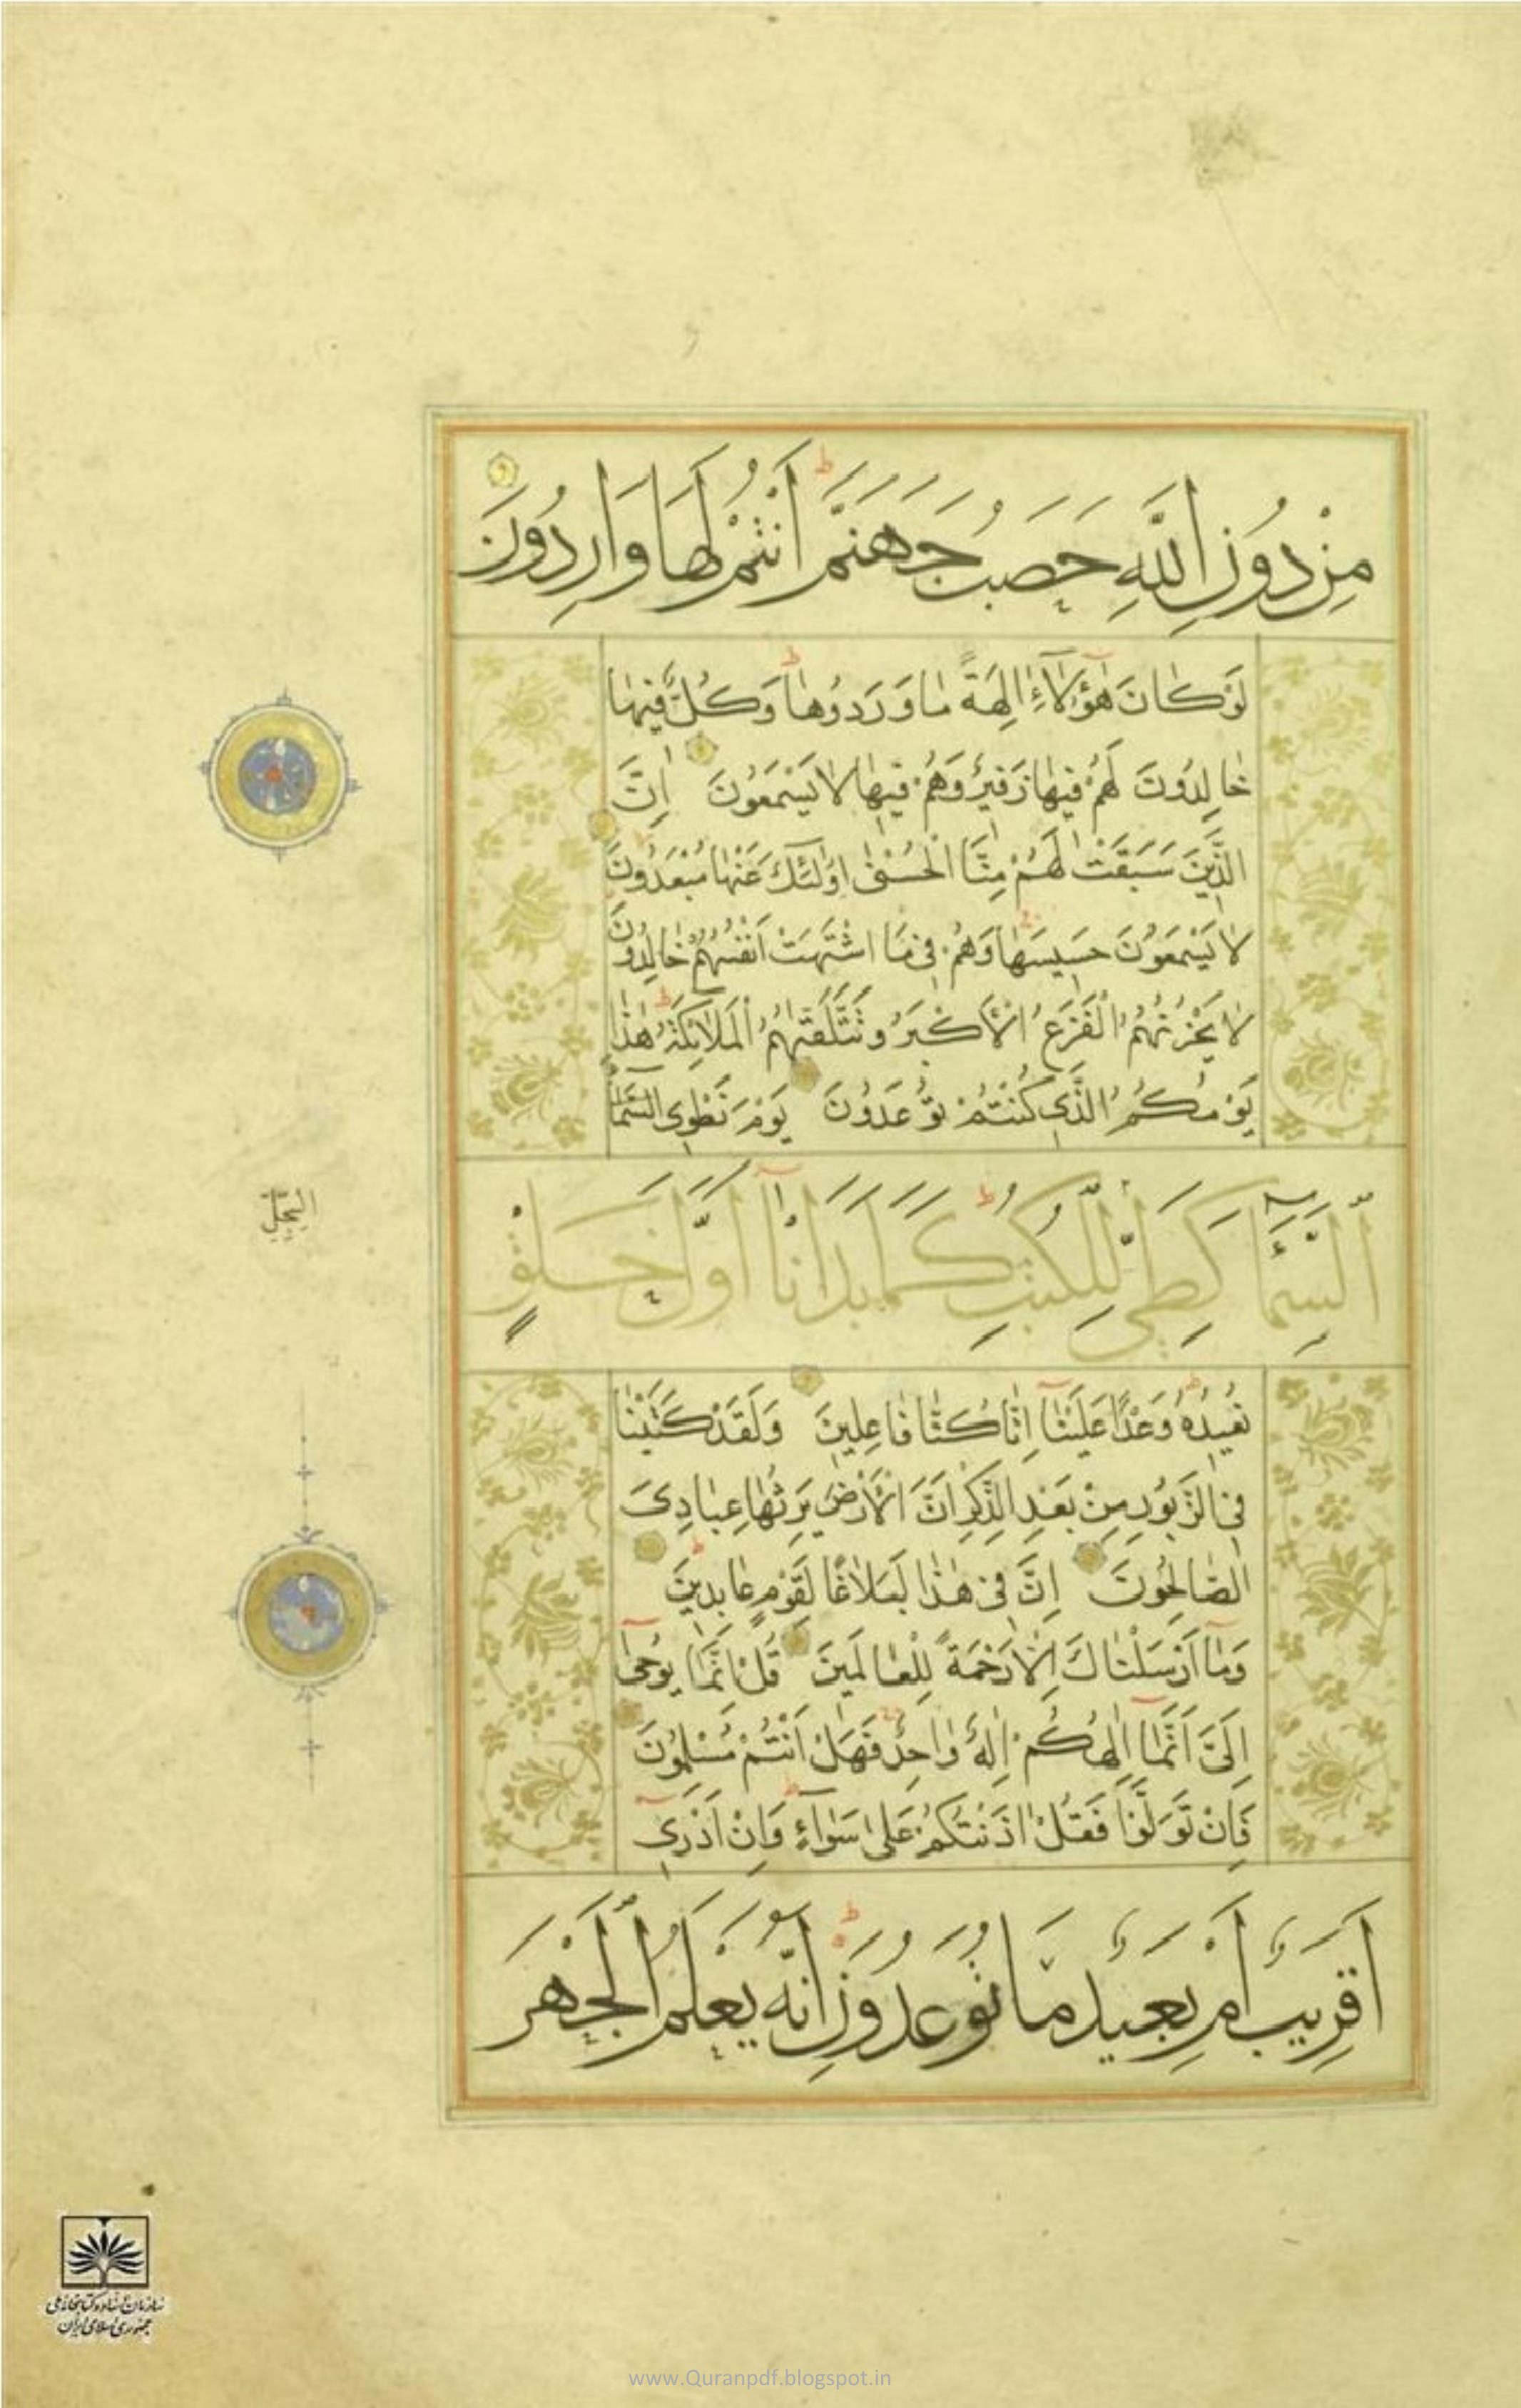 مِنْ دُونِ اللَّهِ حَصَبُ جَهَنَّمَ أَنْتُمْ لَهَا وَارِدُونَ
لَوْ كَانَ هٰؤُلَاءِ اٰلِهَةً مَا وَرَدُوهَا وَكُلٌّ فِيهَا
خَالِدُونَ لَهُمْ فِيهَا زَفِيرٌ وَهُمْ فِيهَا لَا يَسْمَعُونَ اِنَّ
الَّذِينَ سَبَقَتْ لَهُمْ مِنَّا الْحُسْنٰى اُولٰئِكَ عَنْهَا مُبْعَدُونَ
لَا يَسْمَعُونَ حَسِيسَهَا وَهُمْ فِي مَا اشْتَهَتْ اَنْفُسُهُمْ خَالِدُونَ
لَا يَحْزُنُهُمُ الْفَزَعُ الْاَكْبَرُ وَتَتَلَقّٰهُمُ الْمَلَائِكَةُ هٰذَا
يَوْمُكُمُ الَّذِي كُنْتُمْ تُوعَدُونَ يَوْمَ نَطْوِي السَّمَاءَ
السِّجِلِّ
السَّمَاءَ كَطَيِّ لِلْكُتُبِ كَمَا بَدَأْنَا اَوَّلَ خَلْقٍ
نُعِيدُهُ وَعْدًا عَلَيْنَا اِنَّا كُنَّا فَاعِلِينَ وَلَقَدْ كَتَبْنَا
فِي الزَّبُورِ مِنْ بَعْدِ الذِّكْرِ اَنَّ الْاَرْضَ يَرِثُهَا عِبَادِيَ
الصَّالِحُونَ اِنَّ فِي هٰذَا لَبَلَاغًا لِقَوْمٍ عَابِدِينَ
وَمَا اَرْسَلْنَاكَ اِلَّا رَحْمَةً لِلْعَالَمِينَ قُلْ اِنَّمَا يُوحٰى
اِلَيَّ اَنَّمَا اِلٰهُكُمْ اِلٰهٌ وَاحِدٌ فَهَلْ اَنْتُمْ مُسْلِمُونَ
فَاِنْ تَوَلَّوْا فَقُلْ اٰذَنْتُكُمْ عَلٰى سَوَاءٍ وَاِنْ اَدْرِي
اَقَرِيبٌ اَمْ بَعِيدٌ مَا تُوعَدُونَ اِنَّهُ يَعْلَمُ الْجَهْرَ
سازمان اسناد و کتابخانه ملی
جمهوری اسلامی ایران
www.Quranpdf.blogspot.in